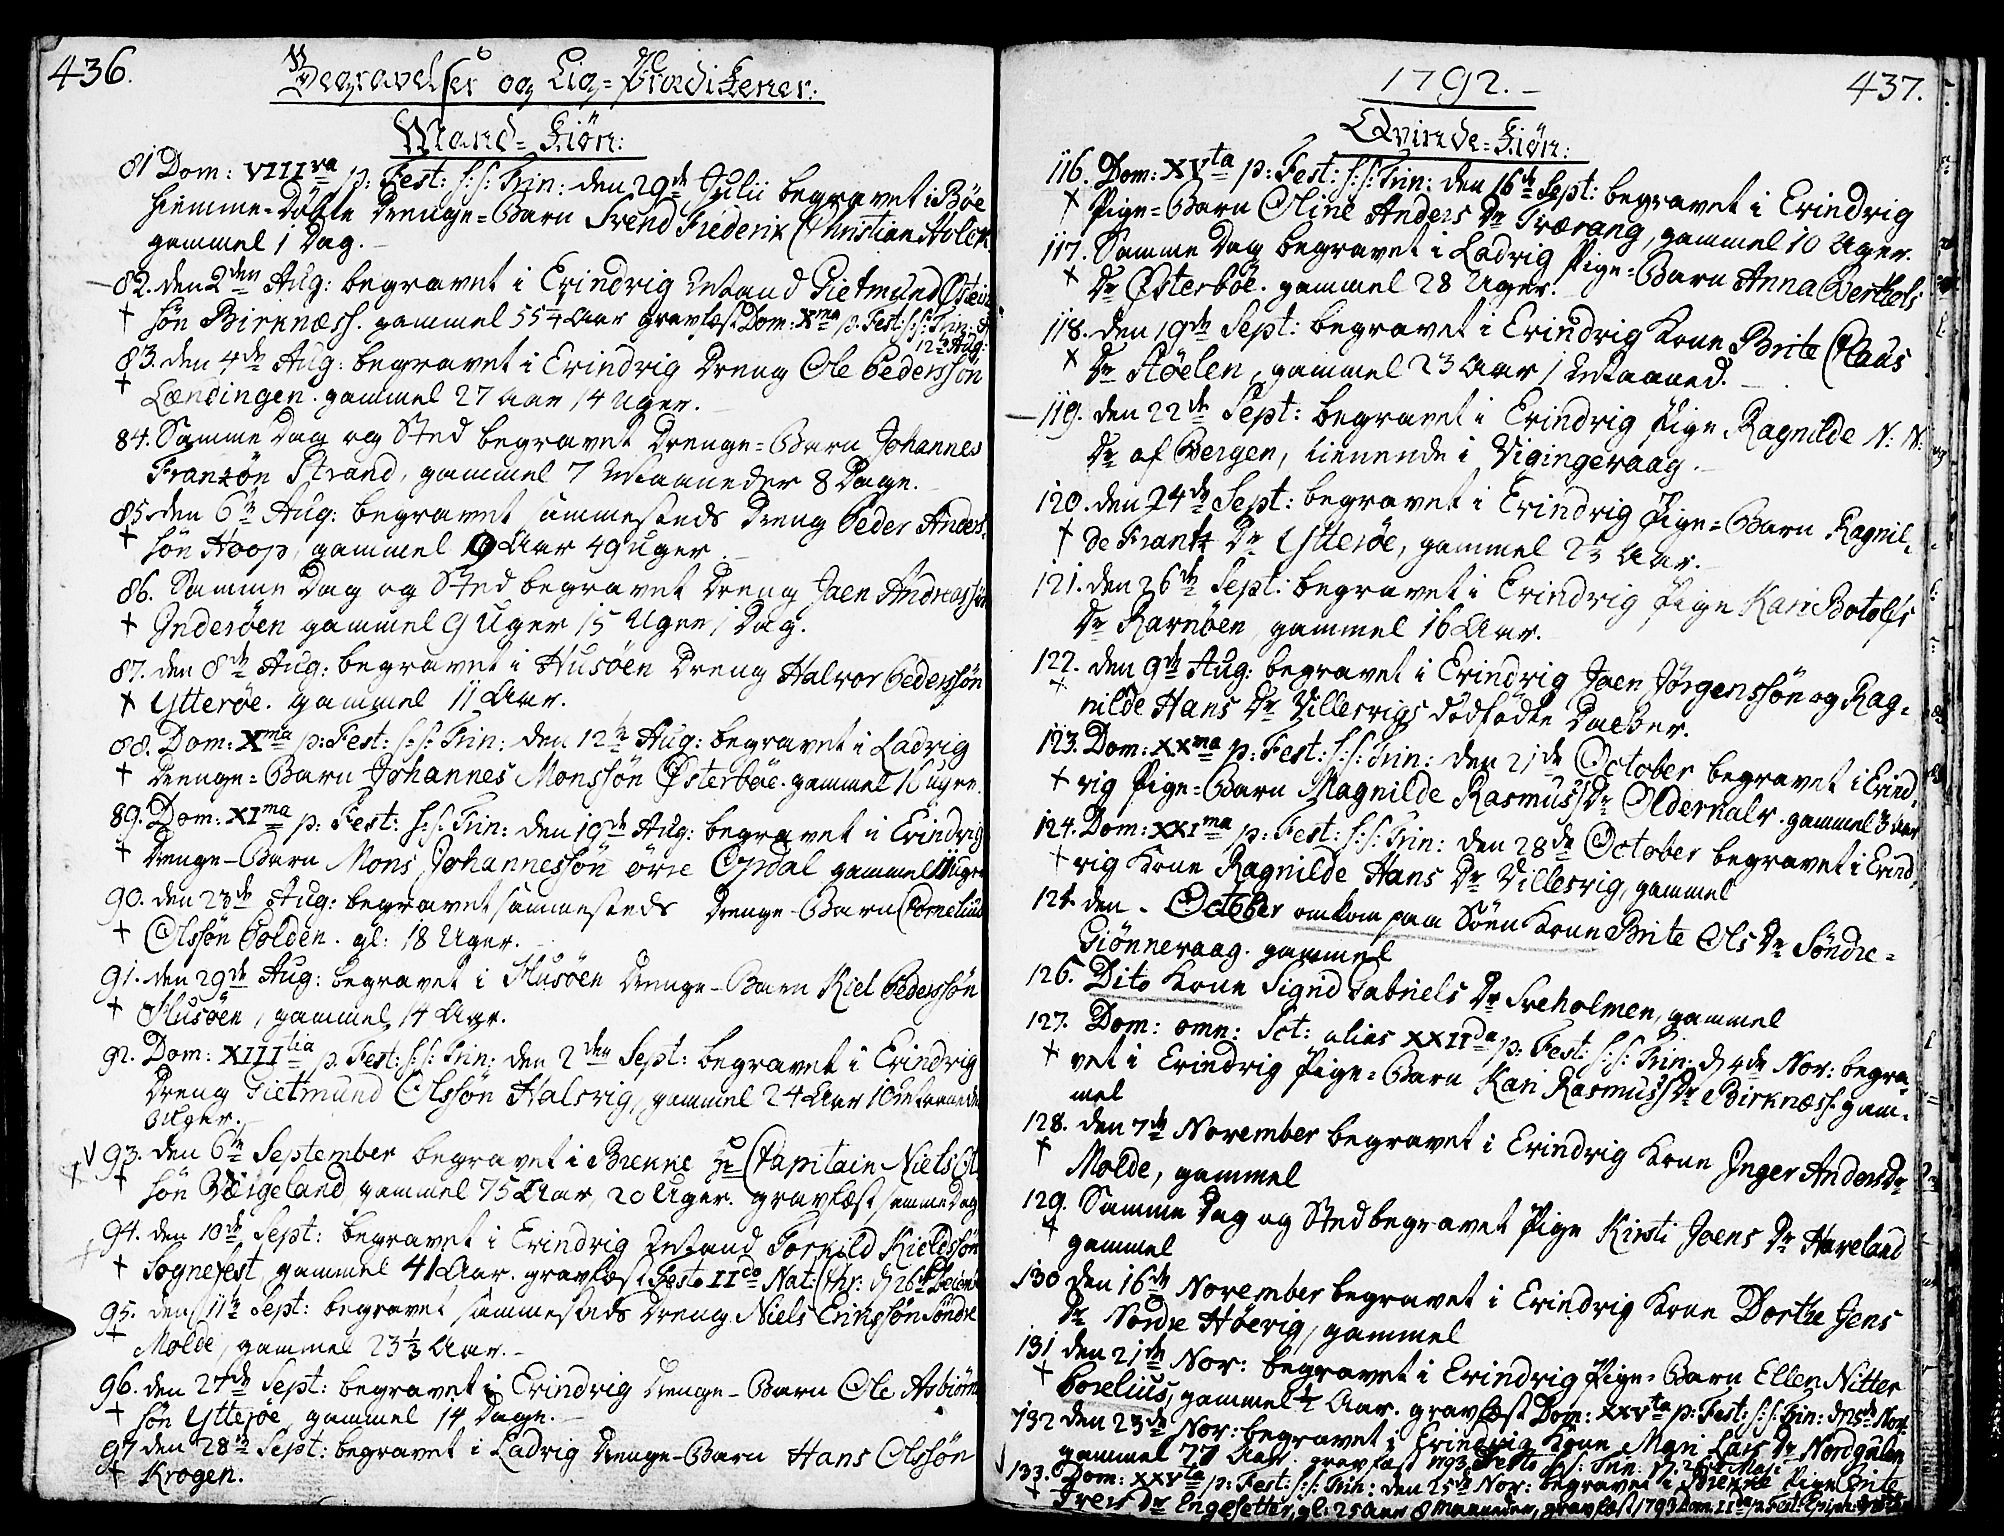 436.
Begravelser og Lig-Prædikener:
Mand-Kiön:
81 Dom: VIIIva p: Fest: s: s: Trin: den 29de Julii begravet i Böe
hiemme-Döbte Drenge-Barn Svend Friderik Christian Holck
gammel 1 Dag.
82. den 2den Aug: begravet i Evindvig Mand Gietmund Østens
søn Birknæss. gammel 55¼ Aar gravfæst Dom: Xma p: Fest: s: s: Trin: d
12te Aug:
83. den 4de Aug: begravet i Evindvig Dreng Ole Pederssøn
Lændingen. gammel 27 Aar 14 Uger.
84. Samme Dag og Sted begravet Drenge-Barn Johannes
Franzön Strand, gammel 7 Maaneder 8 Dage.
85. den 6te Aug: begravet sammesteds Dreng Peder Anders-
søn Hoop, gammel 9 Aar 49 Uger.
86. Samme Dag og Sted begravet Dreng Joen Andreassøn
Inderöen gammel 9 Uger 15 Uger 1 Dag.
87. den 8de Aug: begravet i Husöen Dreng Halvor Pederssøn
Ytteröe. gammel 11 Aar.
88. Dom: Xma p: Fest: s: s: Trin: den 12te Aug: begravet i Ladvig
Drenge-Barn Johannes Monssøn Østerböe. gammel 16 Uger.
89. Dom: XIma p: Fest: s: s: Trin: den 19de Aug: begravet i Evindvig
Drenge-Barn Mons Johannessøn övre Opdal gammel 11 Uger
90. den 23de Aug: begravet sammesteds Drenge-Barn Cornelius
Olssøn Polden. gl: 18 Uger.
91. den 29de Aug: begravet i Husöen Drenge-Barn Kiel Pederssøn
Husöen, gammel 14 Aar.
92. Dom: XIIItia p: Fest: s: s: Trin: den 2den Sept: begravet i Evindvig
Dreng Gietmund Olssøn Halsvig, gammel 24 Aar 10 Maaneder
Uger.
93. den 6te September begravet i Brekke Hr Capitain Niels Ol
søn Wergeland, gammel 75 Aar, 20 Uger. gravfæst samme Dag
94. den 10de Sept: begravet i Evindvig Mand Torkild Kieldssøn
Sognefest, gammel 41 Aar. gravfæst Festo IIdo Nat: Chr: d 26de Decemb
95. den 11te Sept: begravet sammesteds Dreng Niels Erikssøn Söndre
Molde, gammel 23⅓ Aar.
96. den 27de Sept: begravet i Evindvig Drenge-Barn Ole Asbiörn
søn Ytteröe, gammel 14 Dage.
97 den 28de Sept: begravet i Ladvig Drenge-Barn Hans Olssøn
Krogen.
1792.
437.
Qvinde-Kiön:
116. Dom: XVta p: Fest: s: s: Trin: den 16de Sept: begravet i Evindvig
Pige-Barn Oline Anders Dr Traerang, gammel 10 Uger.
117. Samme Dag begravet i Ladvig Pige-Barn Anna Bertels
Dr Østerböe. gammel 28 Uger.
118. den 19de Sept: begravet i Evindvig Kone Brite Claus
Dr Stöelen, gammel 23 Aar 1 Maaned.
119. den 22de Sept: begravet i Evindvig Pige Ragnilde N: N:
Dr af Bergen, tienende i Vigingevaag.
120. den 24de Sept: begravet i Evindvig Pige-Barn Ragnil-
de Frantz Dr Ytteröe, gammel 2⅓ Aar.
121. den 26de Sept: begravet i Evindvig Pige Kari Botolfs
Dr Ravnöen, gammel 16 Aar.
122. den 9de Aug: begravet i Evindvig Joen Jörgenssön og Rag-
nilde Hans Dr Villesvigs dödfödte Datter.
123. Dom: XXma p: Fest: s: s: Trin: den 21de October begravet i Evind-
vig Pige-Barn Magnilde Rasmus Dr Oldervalv. gammel 3 Uger
124. Dom: XXIma p: Fest: s: s: Trin: den 28de October begravet i Evind-
vig Kone Ragnilde Hans Dr Villesvig, gammel
125. den - October omkom paa Söen Kone Brite Ols Dr Söndre-
Giönnevaag. gammel
126. Dito Kone Signd Gabriels Dr Sveholmen, gammel
127. Dom: omn: Sct: alias XXIIda p: Fest: s: s: Trin: d 4de Nov: begra-
vet i Evindvig Pige-Barn Kari Rasmus Dr Birknæss. gam-
mel
128. den 7de November begravet i Evindvig Kone Inger Anders Dr
Molde, gammel
129. Samme Dag og Sted begravet Pige Kirsti Joens Dr Haveland
gammel
130 den 16de November begravet i Evindvig Kone Dorthe Jens
Dr Nordre Höevig, gammel
131 den 21de Nov: begravet i Evindvig Pige-Barn Ellen Nitter
Povelius, gammel ½ Aar. gravfæst Dom: XXVta p: Fest: s: s: Trin: d 25de Nov:
132 den 23de Nov: begravet i Evindvig Kone Mari Lars Dr Nordgulen
gammel 77 Aar. gravfæst 1793 Festo s: s: Trin: d: 26de Maji
133. Dom: XXVta p: Fest: s: s: Trin: den 25de Nov: begravet i Brekke Pige Brite
Ivers Dr Engesetter, gl: 25 Aar 8 Maaneder, gravfæst 1793 Dom: IIda p: Fest: Epiph: